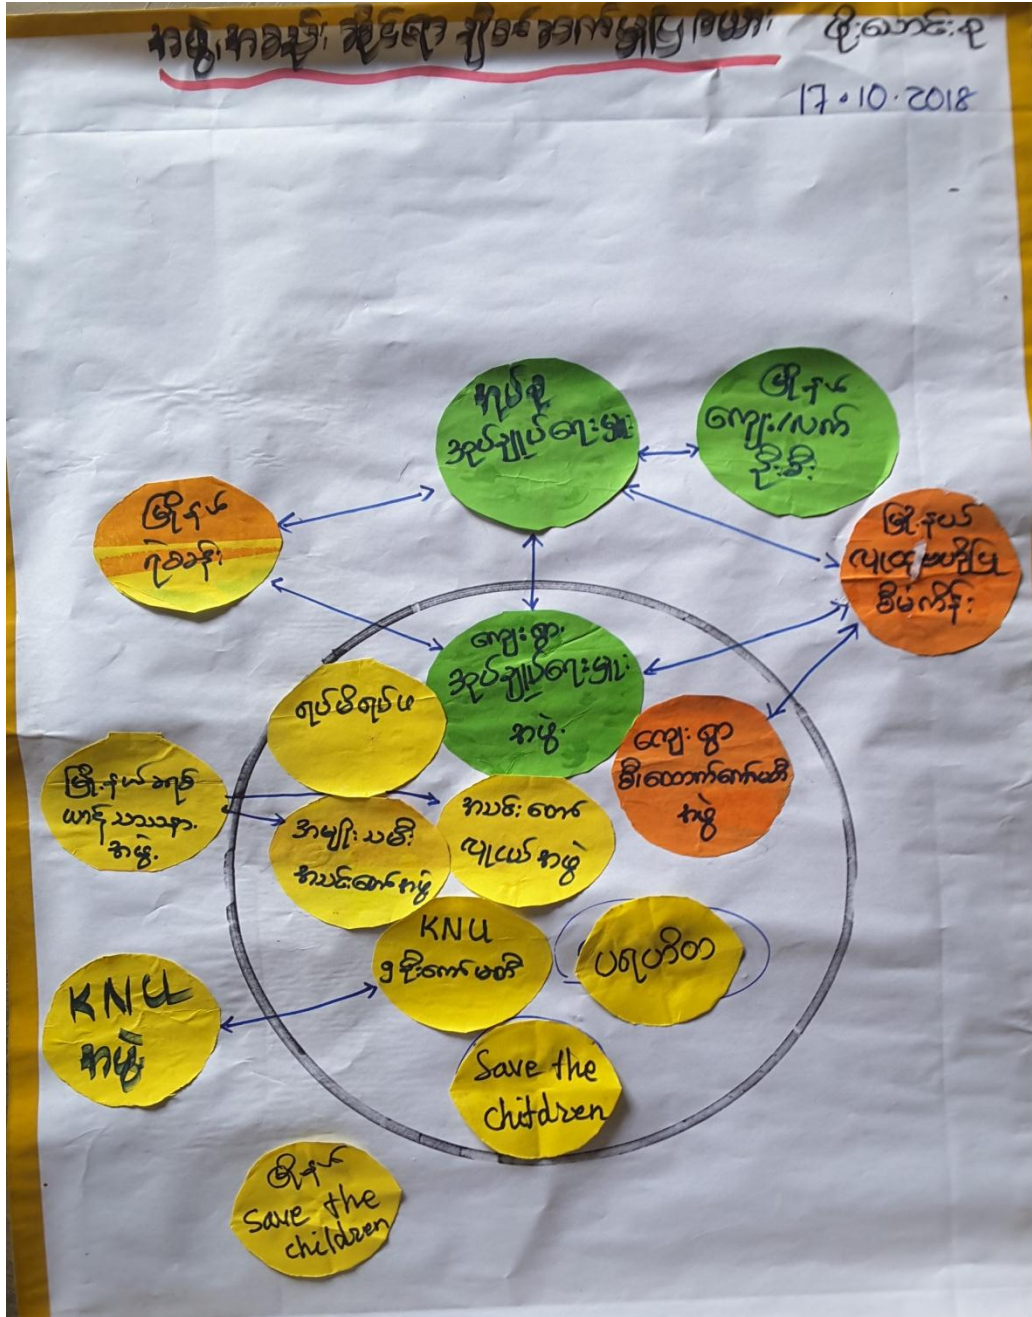 အဖွဲ့အစည်း ဆိုင်ရာ ချိတ်ဆက်မှုပြ ဇယား
စိုးသောင်းစု
17.10.2018
အုပ်စု
အုပ်ချုပ်ရေးမှူး
မြို့နယ်
ကျေး/လက်
ဦးစီး
မြို့နယ်
ရဲစခန်း
မြို့နယ်
လူထုဗဟိုပြု
စီမံကိန်း
ကျေးရွာ
အုပ်ချုပ်ရေးမှူး
အဖွဲ့
ရပ်မိရပ်ဖ
ကျေးရွာ
စီး‌ထောက်ကော်မတီ
အဖွဲ့
မြို့နယ်ခရစ်
ယာန်သာသနာ
အဖွဲ့
အမျိုးသမီး
အသင်းတော်အဖွဲ့
အသင်းတော်
လူငယ်အဖွဲ့
KNU
၅ ဦးကော်မတီ
ပရဟိတ
KNU
အဖွဲ့
Save the
children
မြို့နယ်
Save the
children